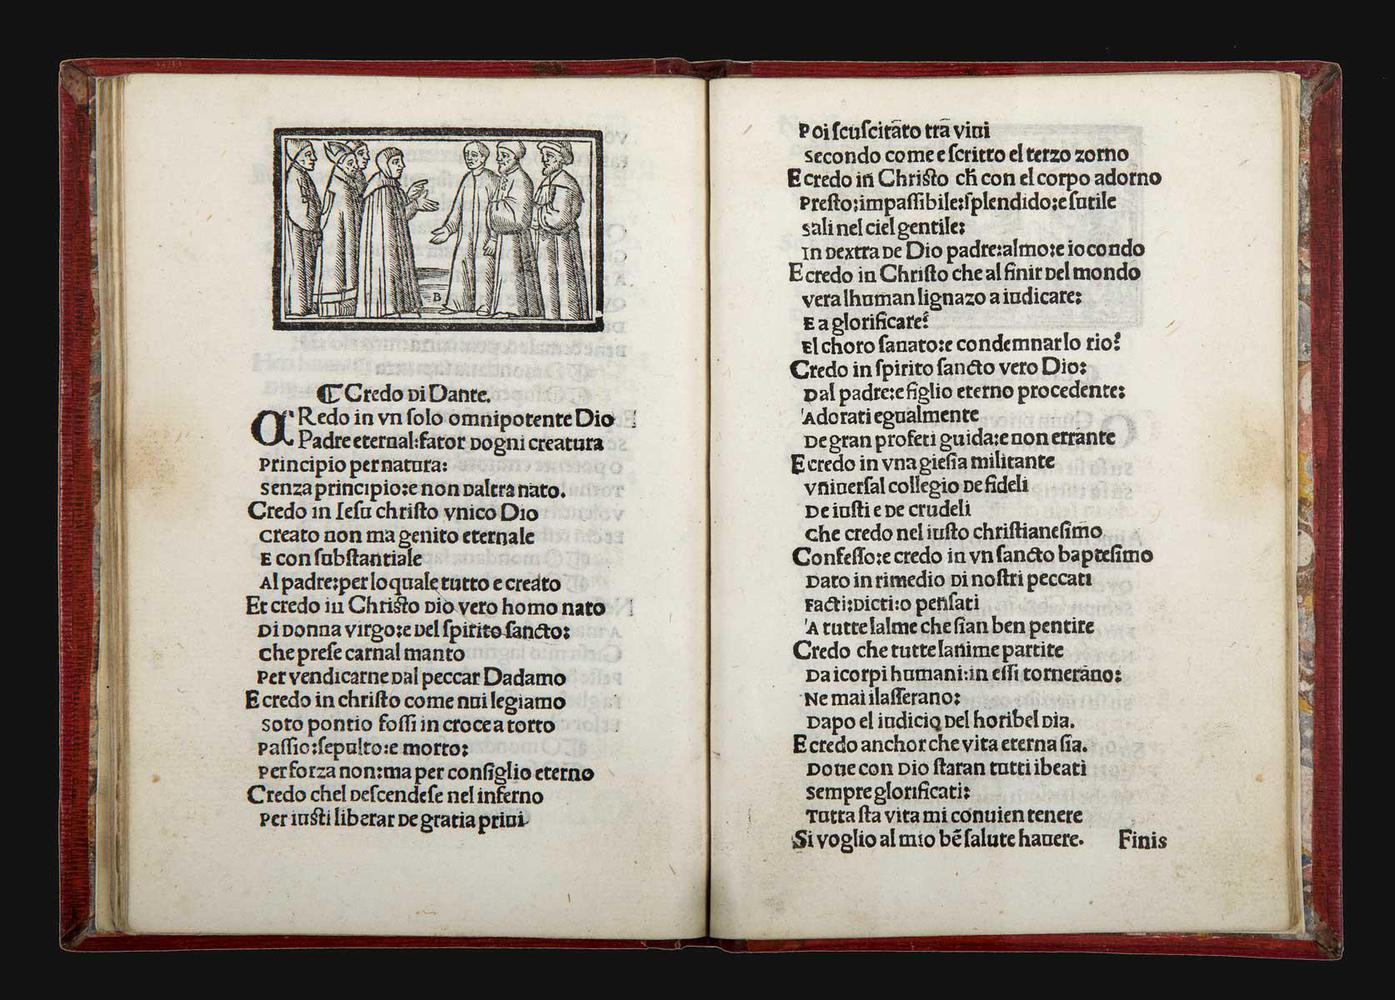 B
⁋ Credo di Dante.
CRedo in vn ſolo omnipotente Dio
Padre eternal:fator dogni creatura
Principio per natura:
Senza principio:e non daltra nato.
Credo in Ieſu chriſto vnico Dio
Creato non ma genito eternale
E con ſubſtantiale
Al padre:per lo quale tutto e creato
Et credo in Chriſto dio vero homo nato
Di donna virgo:e del ſpirito ſancto:
Che preſe carnal manto
Per vendicarne dal peccar Dadamo
E credo in chriſto come nui legiamo
Soto pontio foſſi in croce a torto
Paſſio:ſepulto:e morto:
Per forza non:ma per conſiglio eterno
Credo chel deſcendeſe nel inferno
Per iuſti liberar de gratia priui
Poi ſcuſcitato tra viui
Secondo come e ſcritto el terzo zorno
E credo in Chriſto ch̄ con el corpo adorno
Preſto:impaſſibile:ſplendido:e ſutile
Sali nel ciel gentile:
In dextra de Dio padre:almo:e iocondo
E credo in Chriſto che al finir del mondo
Vera lhuman lignazo a iudicare:
E a glorificare:
El choro ſanato:e condemnar lo rio:
Credo in ſpirito ſancto vero Dio:
Dal padre:e figlio eterno procedente:
Adorati egualmente
De gran profeti guida:e non errante
E credo in vna gieſia militante
Vniuerſal collegio de fideli
De iuſti e de crudeli
Che credo nel iuſto chriſtianeſimo
Confeſſo:e credo in vn ſancto bapteſimo
Dato in rimedio di noſtri peccati
Facti:dicti:o penſati
A tutte lalme che ſian ben pentire
Credo che tutte lanime partite
Da i corpi humani:in eſſi tornerano:
Ne mai i laſſerano:
Dapo el iudicio del horibel dia.
E credo anchor che vita eterna ſia.
Doue con Dio ſtaran tutti i beati
Sempre glorificati:
Tutta ſta vita mi conuien tenere
Si voglio al mio bē ſalute hauere. Finis